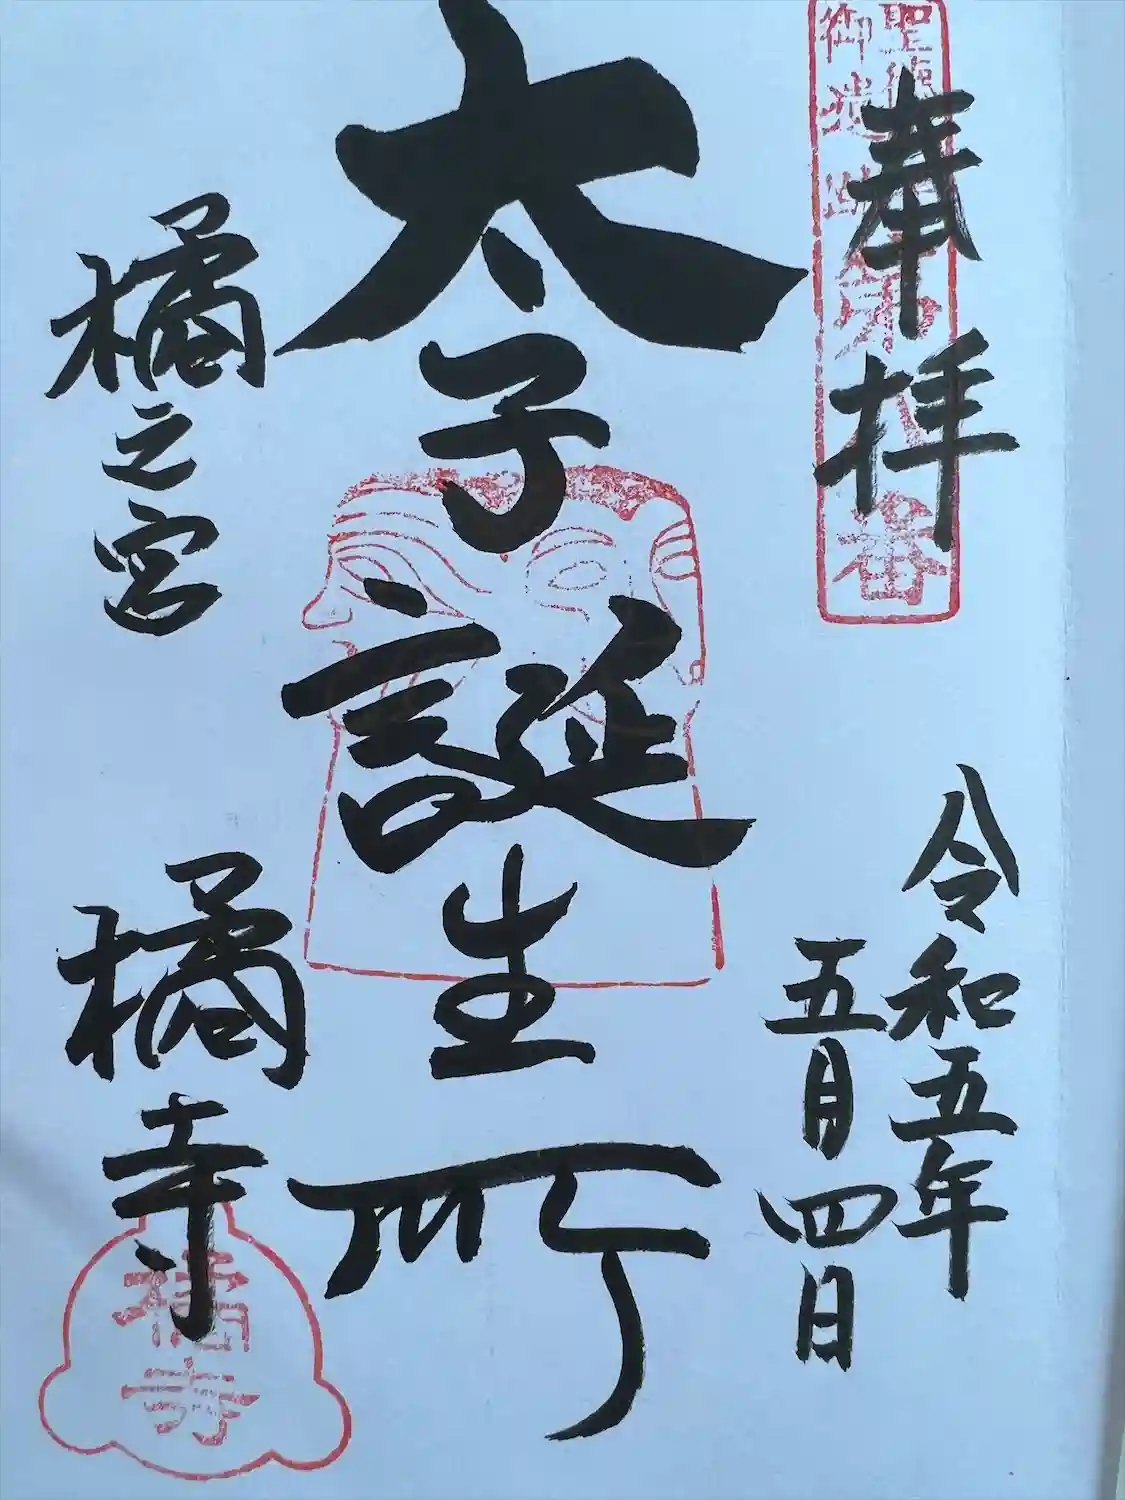 奉拝
聖徳
御遺跡第八番
令和五年
五月四日
太子誕生所
橘之宮
橘寺
橘寺